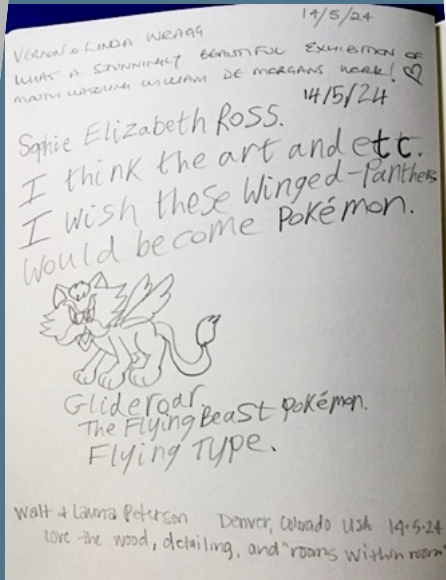 14/5/24
VERNON & LINDA WRAGG
WHAT A STUNNINGLY BEAUTIFUL EXHIBITION OF
WILLIAM DE MORGANS WORK!
14/5/24
Sophie Elizabeth Ross.
I think the art and ett.
I wish these Winged-Panthers
would become Pokémon.
Glideroar.
The Flying Beast Pokémon.
Flying Type.
Walt + Launa Peterson Denver, Colorado USA 14.5.24
love the wood, detailing, and "rooms within room"